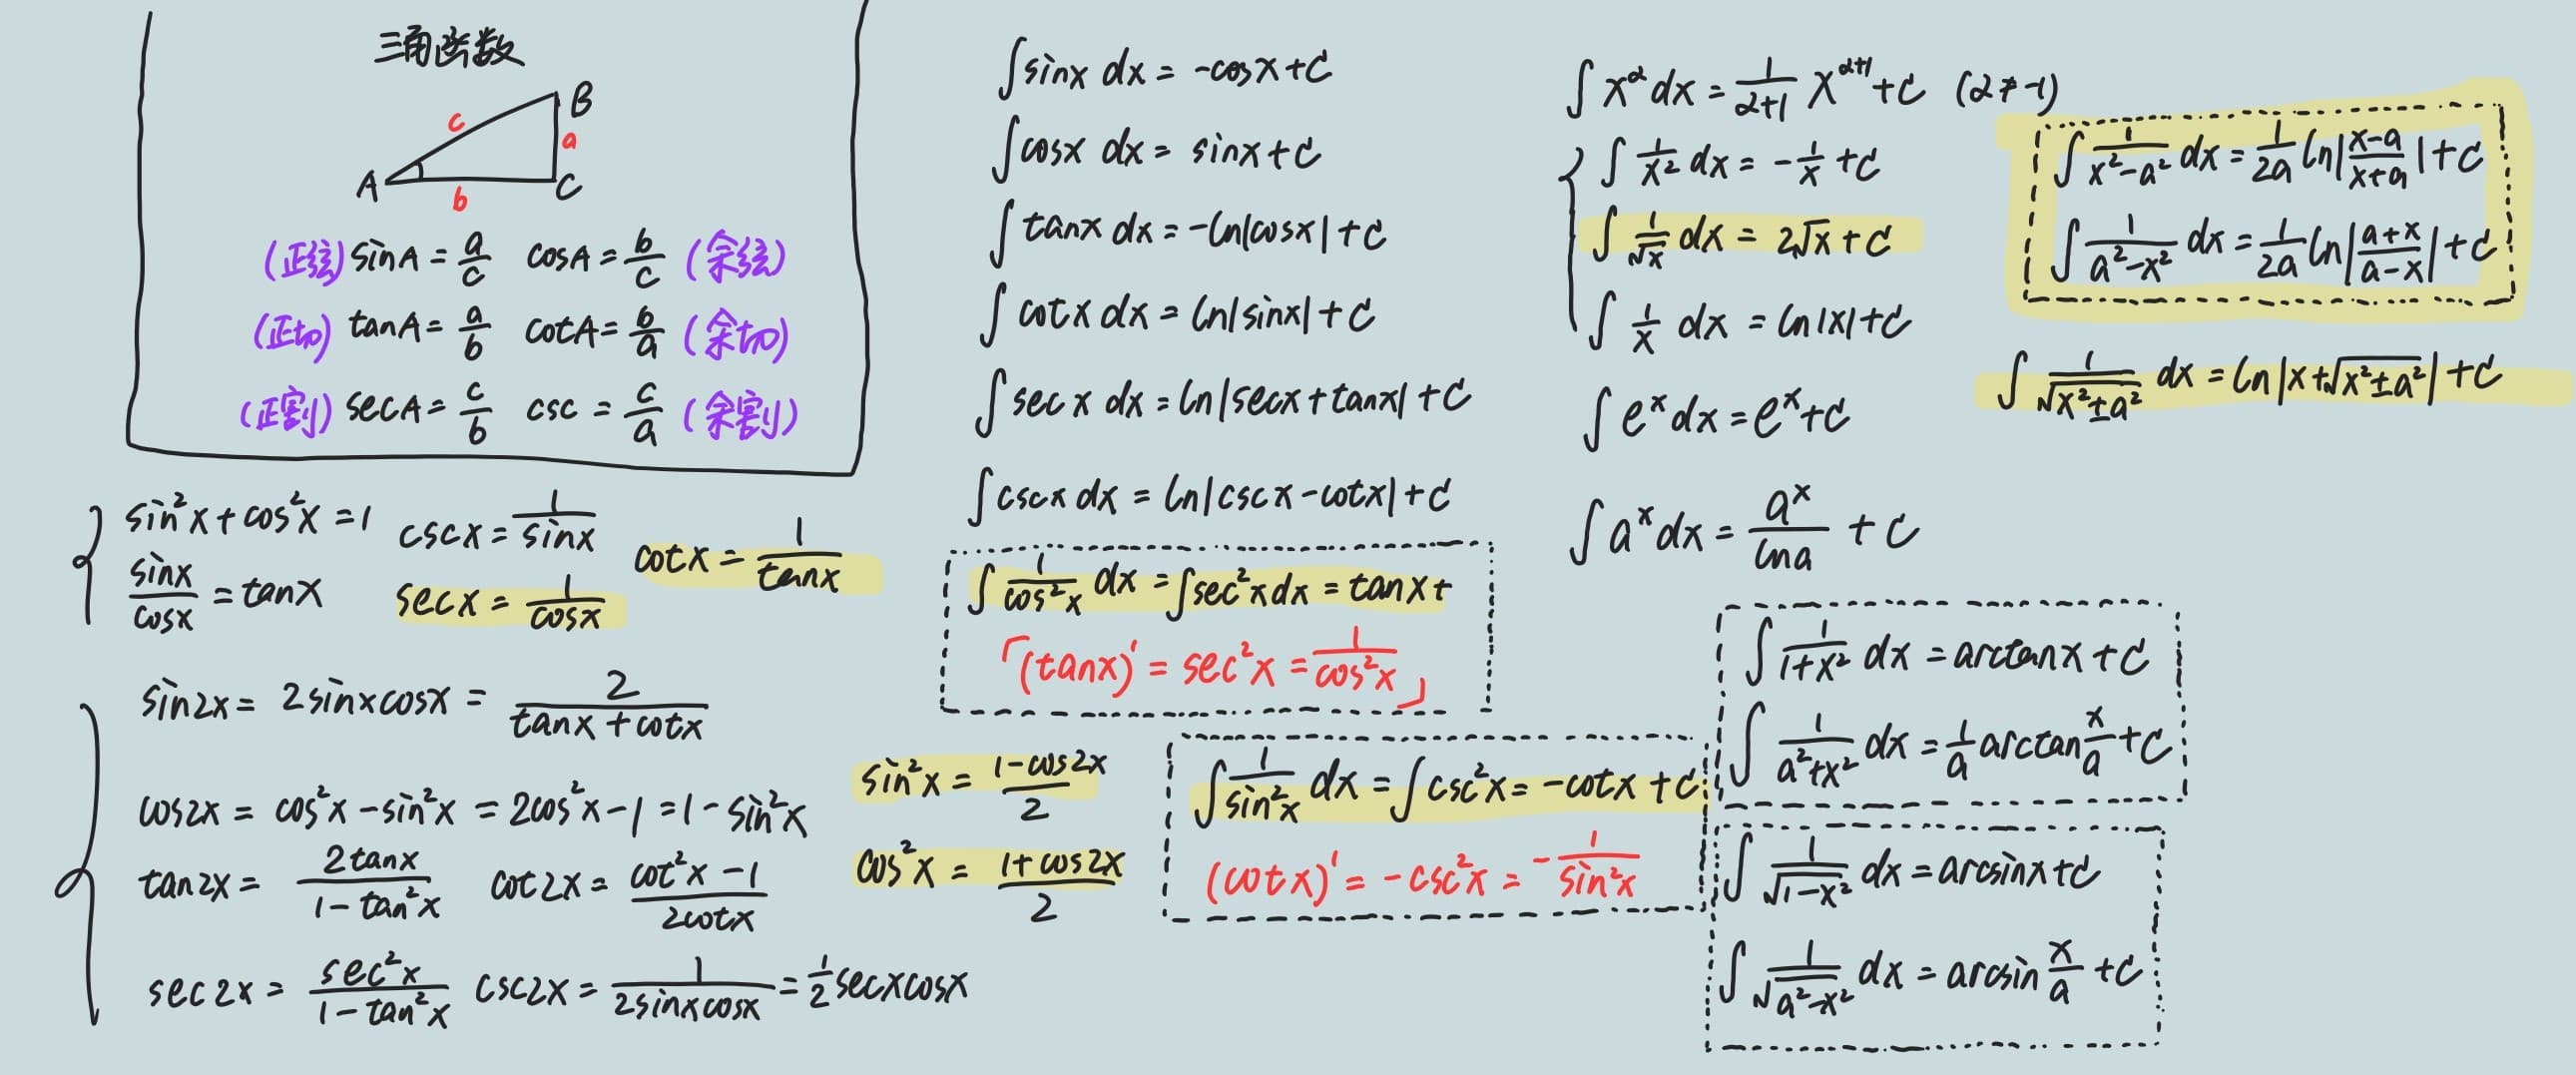 三角函数
B
c
a
A
b
C
(正弦) sinA = a/c cosA = b/c (余弦)
(正切) tanA = a/b cotA = b/a (余切)
(正割) secA = c/b csc = c/a (余割)
sin²x + cos²x = 1 cscx = 1/sinx
sinx/cosx = tanx secx = 1/cosx cotx = 1/tanx
sin2x = 2sinxcosx = 2/(tanx + cotx)
cos2x = cos²x - sin²x = 2cos²x - 1 = 1 - sin²x
tan2x = 2tanx/(1 - tan²x) cot2x = (cot²x - 1)/2cotx
sec2x = sec²x/(1 - tan²x) csc2x = 1/(2sinxcosx) = 1/2 secxcosx
sin²x = (1 - cos2x)/2
cos²x = (1 + cos2x)/2
∫sinx dx = -cosx + C
∫cosx dx = sinx + C
∫tanx dx = -ln|cosx| + C
∫cotx dx = ln|sinx| + C
∫secx dx = ln|secx + tanx| + C
∫cscx dx = ln|cscx - cotx| + C
∫1/cos²x dx = ∫sec²x dx = tanx +
「(tanx)' = sec²x = 1/cos²x」
∫1/sin²x dx = ∫csc²x = -cotx + C
(cotx)' = -csc²x = -1/sin²x
∫x^α dx = 1/(α+1) x^(α+1) + C (α ≠ -1)
∫1/x² dx = -1/x + C
∫1/√x dx = 2√x + C
∫1/x dx = ln|x| + C
∫e^x dx = e^x + C
∫a^x dx = a^x/lna + C
∫1/(x²-a²) dx = 1/2a ln|(x-a)/(x+a)| + C
∫1/(a²-x²) dx = 1/2a ln|(a+x)/(a-x)| + C
∫1/√(x²±a²) dx = ln|x+√(x²±a²)| + C
∫1/(1+x²) dx = arctanx + C
∫1/(a²+x²) dx = 1/a arctan x/a + C
∫1/√(1-x²) dx = arcsinx + C
∫1/√(a²-x²) dx = arcsin x/a + C